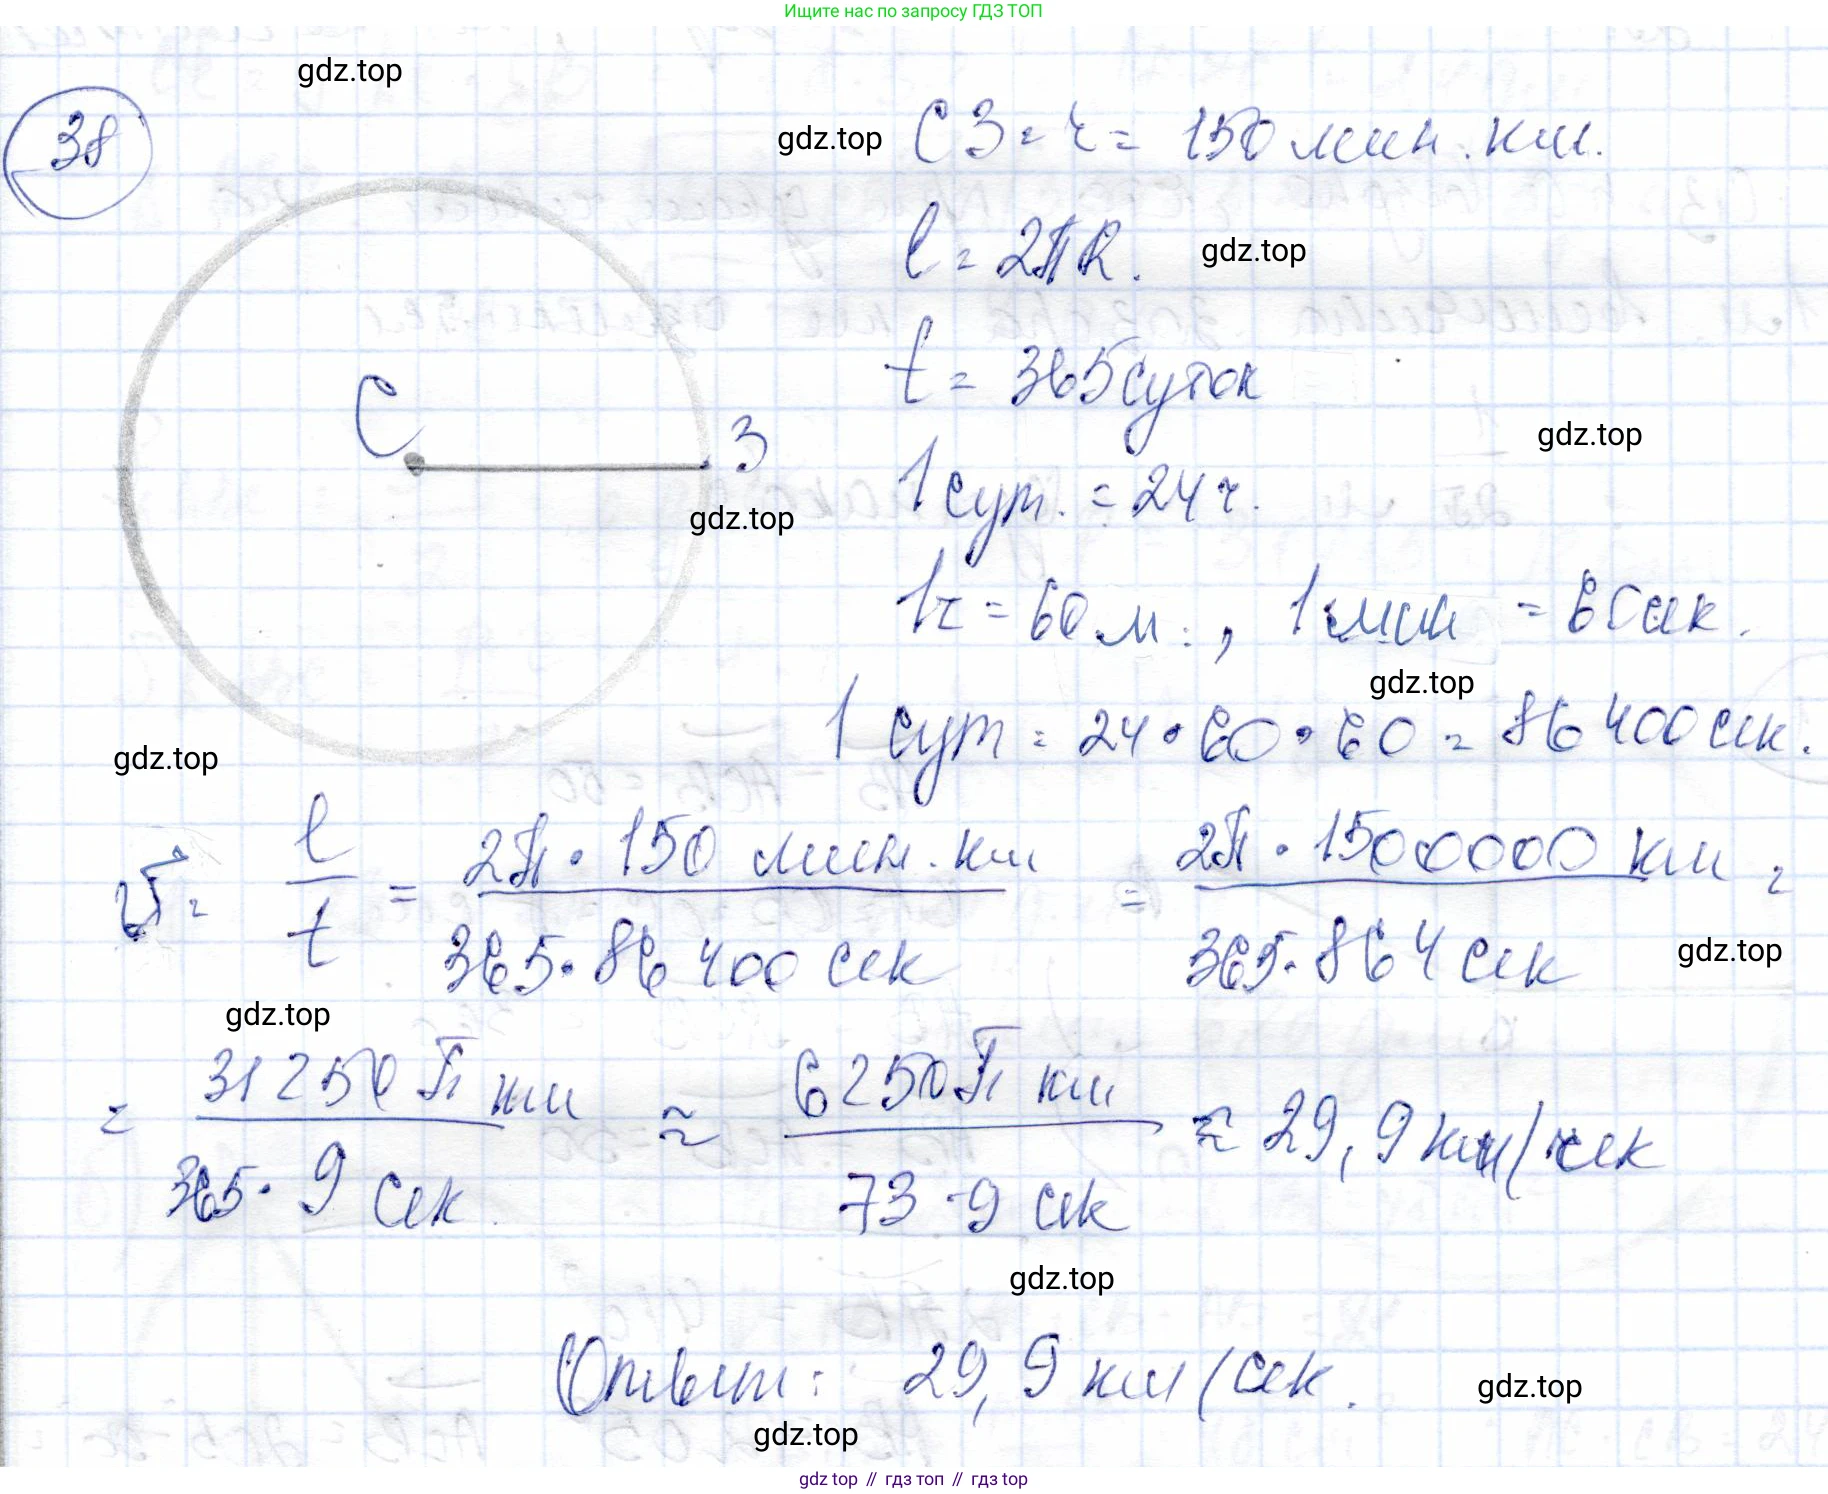 Ищите нас по запросу ГДЗ ТОП
gdz.top
38
gdz.top
СЗ = r = 150 млн. км.
l = 2πR.
gdz.top
t = 365 суток
C
З
gdz.top
gdz.top
1 сут. = 24 ч.
1ч = 60 м., 1 мин = 60 сек.
gdz.top
1 сут = 24 • 60 • 60 = 86 400 сек.
gdz.top
v = l/t = 2π • 150 млн. км / 365 • 86 400 сек = 2π • 1500000 км / 365 • 864 сек =
gdz.top
gdz.top
= 31250 π км / 365 • 9 сек ≈ 6250 π км / 73 • 9 сек ≈ 29,9 км/сек
gdz.top
Ответ: 29,9 км/сек.
gdz.top
gdz.top
gdz top // гдз топ // гдз top